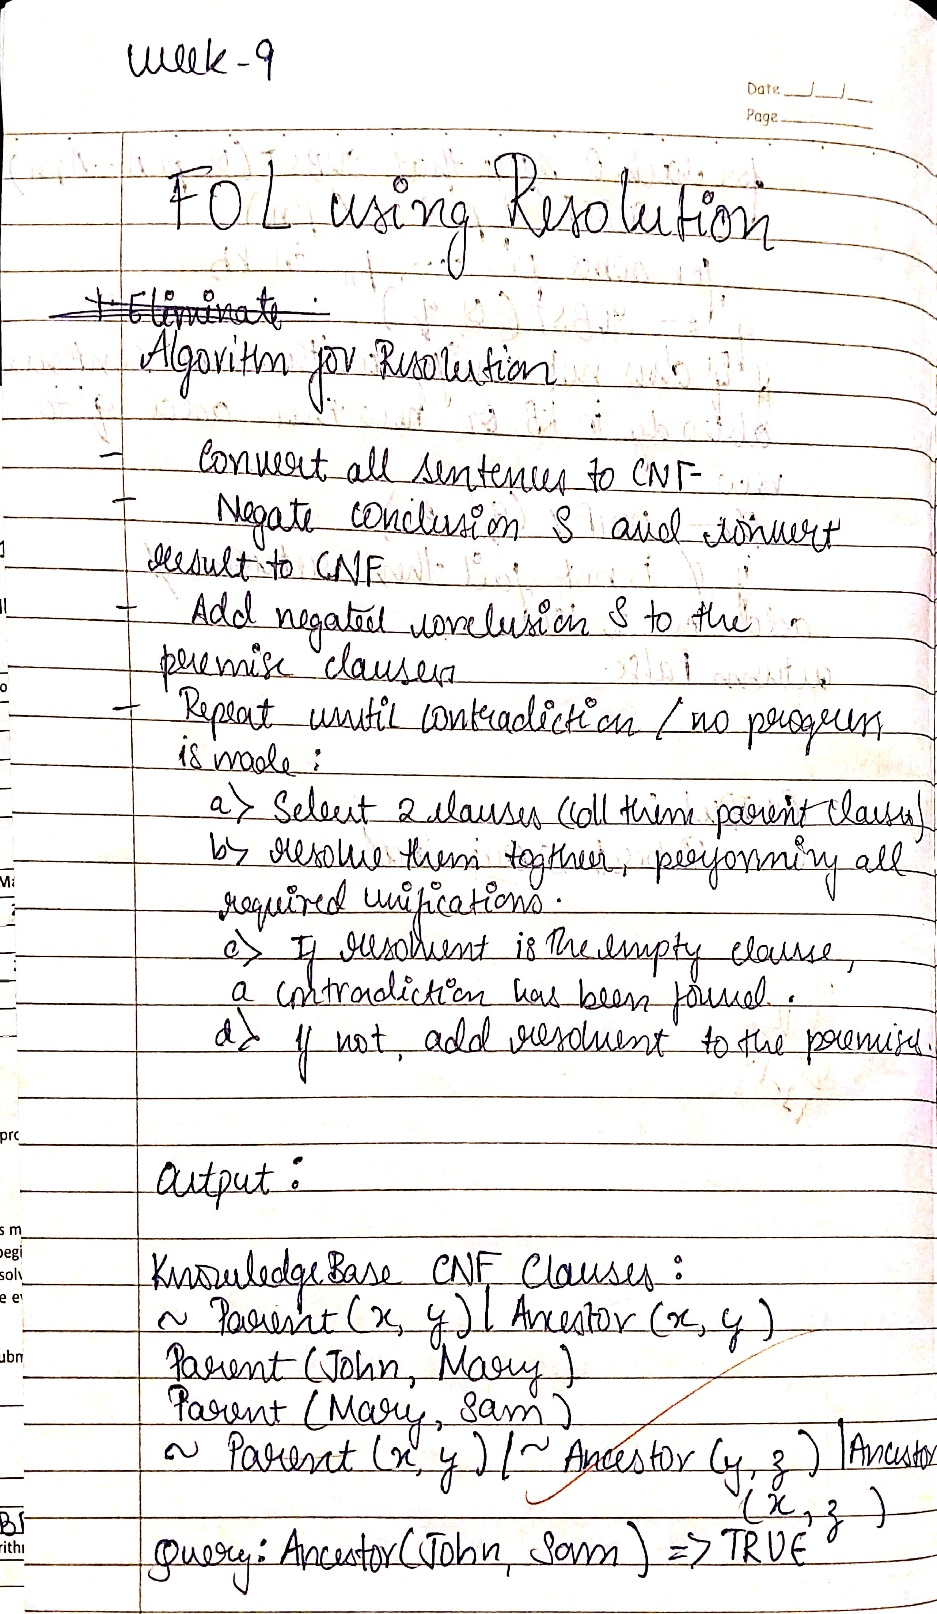 Week-9
Date __/__/__
Page
FOL using Resolution
Eliminate
Algorithm for Resolution
- Convert all sentences to CNF
- Negate conclusion S and convert
result to CNF
- Add negated conclusion S to the
premise clauses
- Repeat until contradiction / no progress
is made :
a> Select 2 clauses (call them parent clauses)
b> resolve them togther, performing all
required unifications.
c> If resolvent is the empty clause,
a contradiction has been found.
d> If not, add resolvent to the premises.
Output :
KnowledgeBase CNF Clauses :
~ Parent (x, y) | Ancestor (x, y)
Parent (John, Mary)
Parent (Mary, Sam)
~ Parent (x, y) | ~ Ancestor (y, z) | Ancestor
(x, z)
Query: Ancestor (John, Sam) => TRUE